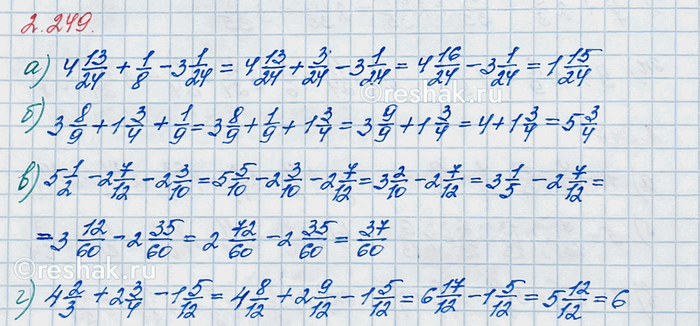 2.249.
а) 4 13/24 + 1/8 - 3 1/24 = 4 13/24 + 3/24 - 3 1/24 = 4 16/24 - 3 1/24 = 1 15/24
б) 3 8/9 + 1 3/4 + 1/9 = 3 8/9 + 1/9 + 1 3/4 = 3 9/9 + 1 3/4 = 4 + 1 3/4 = 5 3/4
в) 5 1/2 - 2 7/12 - 2 3/10 = 5 5/10 - 2 3/10 - 2 7/12 = 3 2/10 - 2 7/12 = 3 1/5 - 2 7/12 =
= 3 12/60 - 2 35/60 = 2 72/60 - 2 35/60 = 37/60
г) 4 2/3 + 2 3/4 - 1 5/12 = 4 8/12 + 2 9/12 - 1 5/12 = 6 17/12 - 1 5/12 = 5 12/12 = 6
reshak.ru
reshak.ru